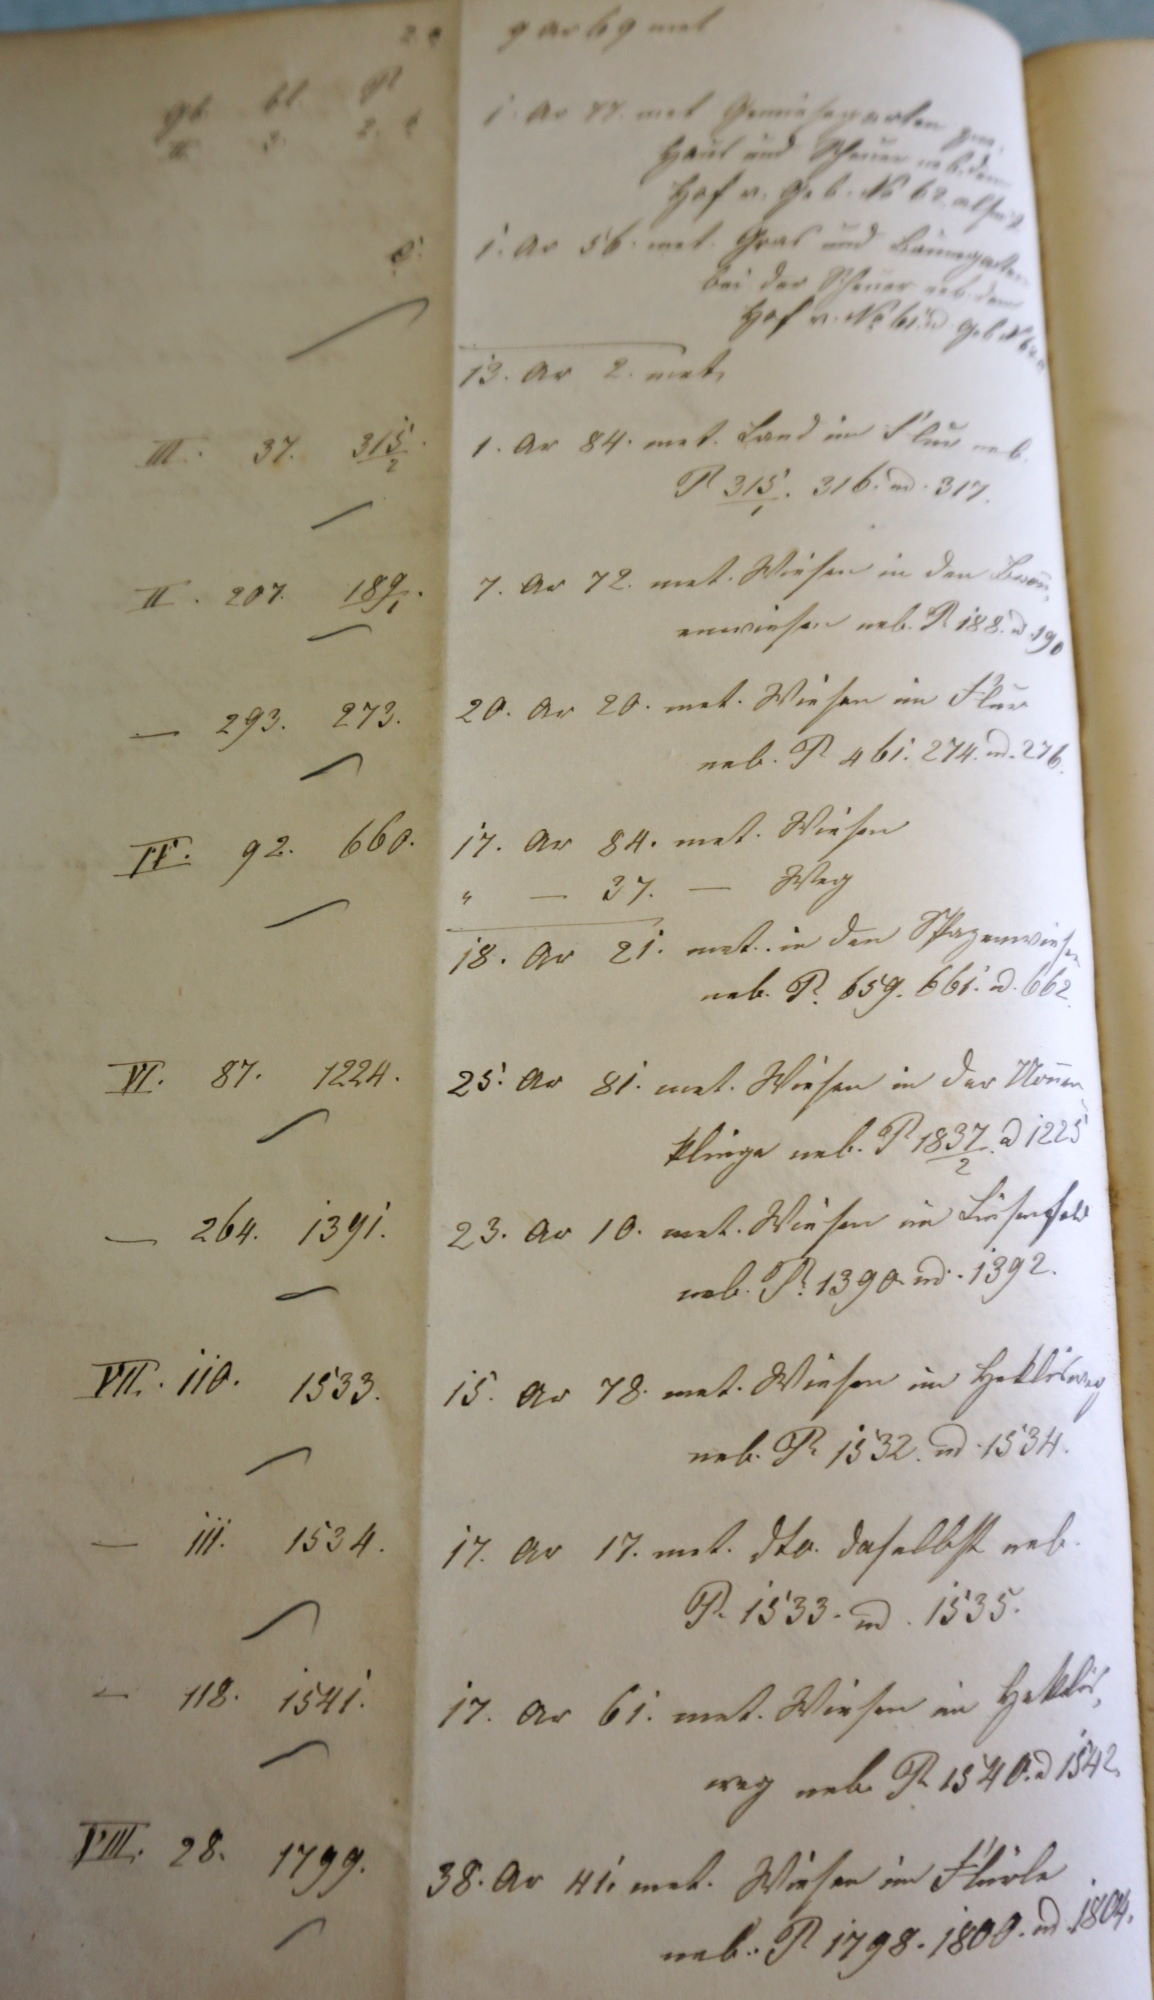 9 ar 69 met
gb. bl. P.
II. 3. 2.
1. Ar 77. met Gemüsegarten zw.
Haus und Scheuer neb. dem
Hof v. Geb. No 62.
1. Ar 56. met. Gras und Baumgarten
bei der Scheuer neb. dem
Hof v. No 61. u. Geb. No 62.
13. Ar 2. met.
III. 37. 315/2. 1. Ar 84. met. Land im Flur neb.
P 315/1. 316. und. 317.
II. 207. 189/1. 7. Ar 72. met. Wiesen in den
enwiesen neb. P. 188. u. 190
— 293. 273. 20. Ar 20. met. Wiesen im Flur
neb. P 461. 274. und. 276.
IV. 92. 660. 17. Ar 84. met. Wiesen
" — 37. — Weg
18. Ar 21. met. in den Spazenwiesen
neb. P. 659. 661. u. 662.
VI. 87. 1224. 25. Ar 81. met. Wiesen in der Nonnen
klinge neb. P 1837/2. u 1225
— 264. 1391. 23. Ar 10. met. Wiesen im
neb. P. 1390. und. 1392.
VII. 110. 1533. 15. Ar 78. met. Wiesen im Heklesweg
neb. P. 1532. und. 1534.
— 111. 1534. 17. Ar 17. met. dto. daselbst neb.
P. 1533. und. 1535.
— 118. 1541. 17. Ar 61. met. Wiesen im Hekles,
weg neb. P. 1540. u 1542.
VIII. 28. 1799. 38. Ar 41. met. Wiesen im Flürle
neb. P 1798. 1800. und. 1804.